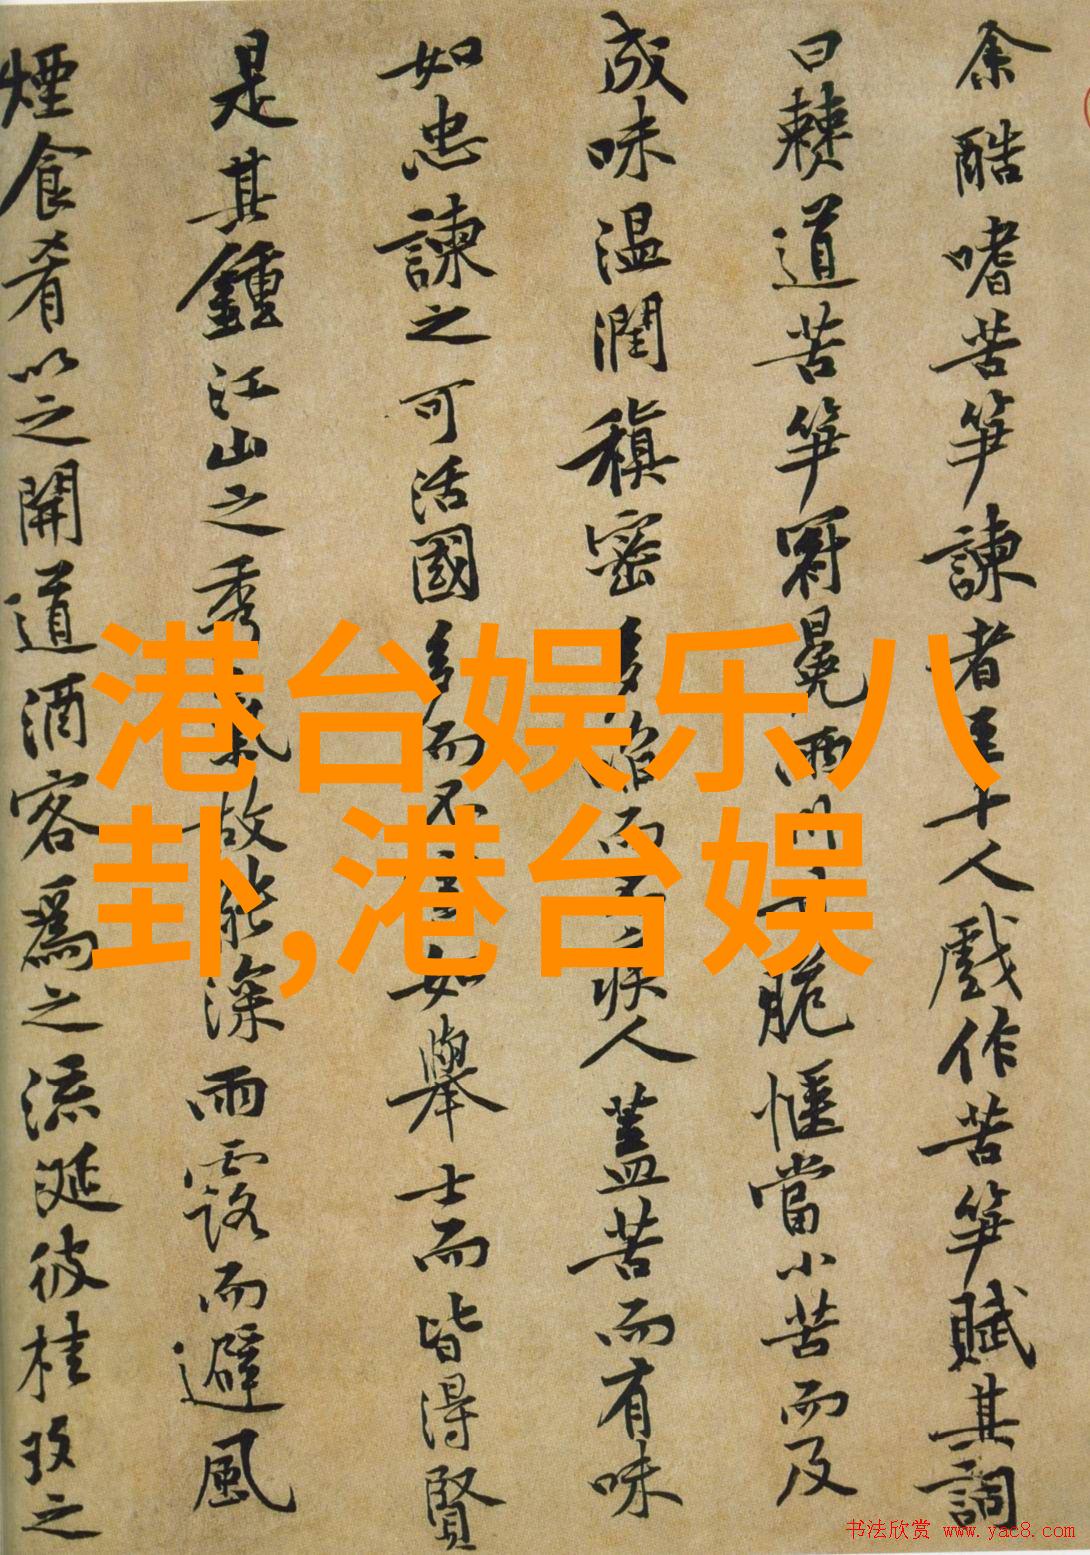 余酷嗜苦笋諫者至十人戲作苦笋賦其詞
曰僰道苦笋冠冕兩川脆愜當小苦而及
成味温潤稹密多啗而不疾人蓋苦而有味
如忠諫之可活國多而不如舉士而皆得賢
是其鍾江山之秀氣故能深雨露而避風
煙食肴以之開道酒客爲之流涎彼桂玫之
港台娱乐八
卦,港台娱
书法欣赏 www.yac8.com